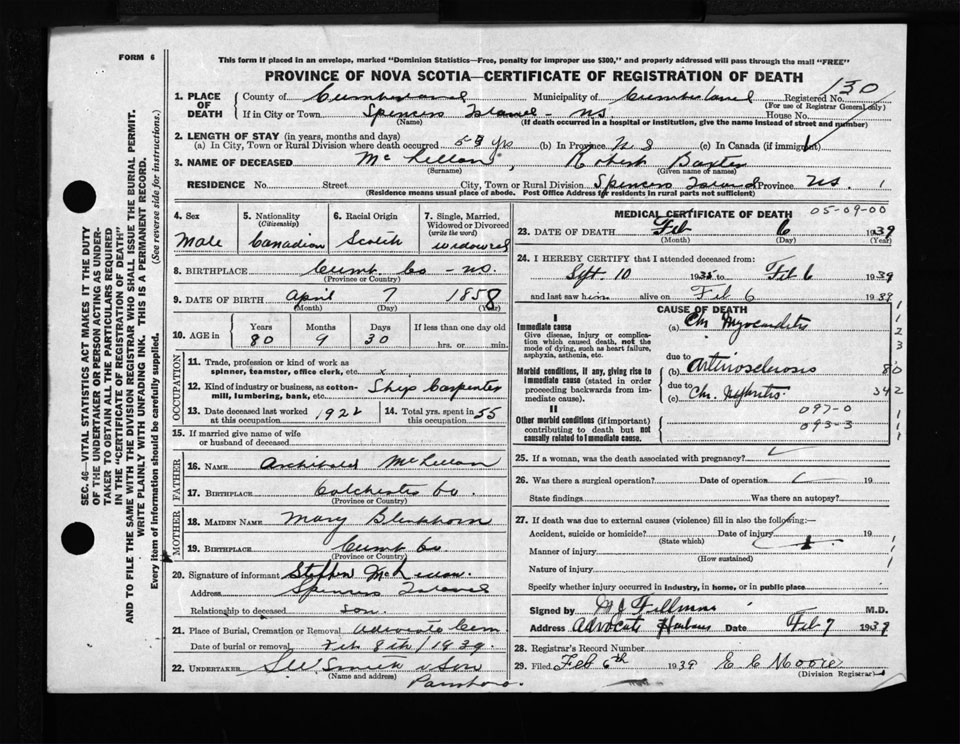 FORM 6
This form if placed in an envelope, marked "Dominion Statistics—Free, penalty for improper use $300," and properly addressed will pass through the mail "FREE"
PROVINCE OF NOVA SCOTIA—CERTIFICATE OF REGISTRATION OF DEATH
1. PLACE OF DEATH County of Cumberland Municipality of Cumberland Registered No. 130
(For use of Registrar General only)
If in City or Town Spencers Island - NS. House No.
(Name) (If death occurred in a hospital or institution, give the name instead of street and number)
2. LENGTH OF STAY (in years, months and days)
(a) In City, Town or Rural Division where death occurred yrs (b) In Province N S (c) In Canada (if immigrant)
3. NAME OF DECEASED Mc Lellan, Robert Baxter
(Surname) (Given name or names)
RESIDENCE No. Street City, Town or Rural Division Spencers Island Province NS.
(Residence means usual place of abode. Post Office Address for residents in rural parts not sufficient)
4. Sex
Male
5. Nationality
(Citizenship)
Canadian
6. Racial Origin
Scotch
7. Single, Married, Widowed or Divorced
(write the word)
widowed
8. BIRTHPLACE Cumb. Co - NS.
(Province or Country)
9. DATE OF BIRTH April 7 1858
(Month) (Day) (Year)
10. AGE in Years Months Days If less than one day old
80 9 30 hrs. or min.
OCCUPATION
11. Trade, profession or kind of work as spinner, teamster, office clerk, etc. x
12. Kind of industry or business, as cotton-mill, lumbering, bank, etc. Ship Carpenter
13. Date deceased last worked at this occupation 1922 14. Total yrs. spent in this occupation 55
15. If married give name of wife or husband of deceased
FATHER
16. NAME Archibald McLellan
17. BIRTHPLACE Colchester Co.
(Province or Country)
MOTHER
18. MAIDEN NAME Mary Blenkhorn
19. BIRTHPLACE Cumb Co
(Province or Country)
20. Signature of informant Stephen McLellan
Address Spencers Island
Relationship to deceased son.
21. Place of Burial, Cremation or Removal Advocate Cem
Date of burial or removal Feb 8th 1939.
22. UNDERTAKER Smith & Son
(Name and address) Parrsboro.
MEDICAL CERTIFICATE OF DEATH 05-09-00
23. DATE OF DEATH Feb 6 1939
(Month) (Day) (Year)
24. I HEREBY CERTIFY that I attended deceased from:
Sept. 10 to Feb 6 1939
and last saw him alive on Feb 6 1939
CAUSE OF DEATH
I
Immediate cause
Give disease, injury or complication which caused death, not the mode of dying, such as heart failure, asphyxia, asthenia, etc.
(a) Chr. Myocarditis
due to
Morbid conditions, if any, giving rise to immediate cause (stated in order proceeding backwards from immediate cause).
(b) Arteriosclerosis
due to
(c) Chr. Nephritis
II
Other morbid conditions (if important) contributing to death but not causally related to immediate cause.
097-0
093-3
25. If a woman, was the death associated with pregnancy?
26. Was there a surgical operation? Date of operation 19
State findings Was there an autopsy?
27. If death was due to external causes (violence) fill in also the following:—
Accident, suicide or homicide? Date of injury 19
(State which)
Manner of injury
(How sustained)
Nature of injury
Specify whether injury occurred in industry, in home, or in public place
Signed by M.J. Fillmore M.D.
Address Advocate Harbour Date Feb 7 1939
28. Registrar's Record Number
29. Filed Feb 6th 1939 E C Moore
(Division Registrar)
SEC. 46—VITAL STATISTICS ACT MAKES IT THE DUTY
OF THE UNDERTAKER OR PERSON ACTING AS UNDER-
TAKER TO OBTAIN ALL THE PARTICULARS REQUIRED
IN THE "CERTIFICATE OF REGISTRATION OF DEATH"
AND TO FILE THE SAME WITH THE DIVISION REGISTRAR WHO SHALL ISSUE THE BURIAL PERMIT.
WRITE PLAINLY WITH UNFADING INK. THIS IS A PERMANENT RECORD.
Every item of information should be carefully supplied. (See reverse side for instructions.)